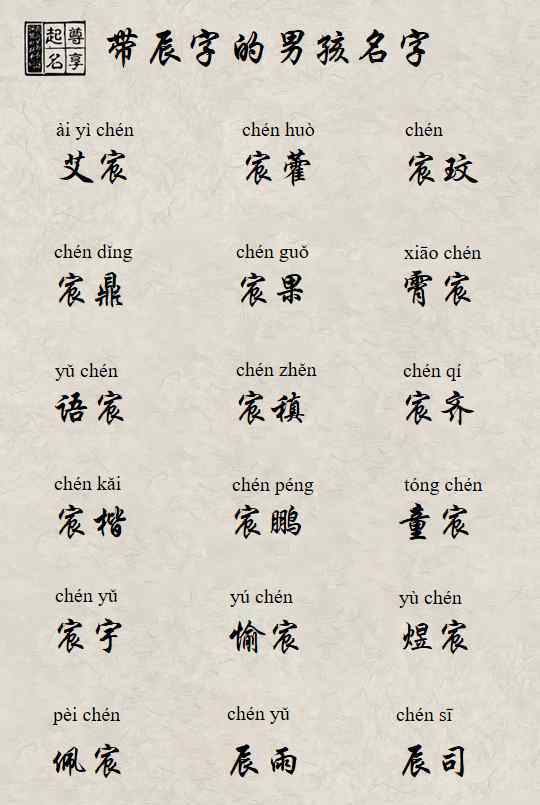 尊享起名
带辰字的男孩名字
ài yì chén chén huò chén
艾宸 宸藿 宸玟
chén dǐng chén guǒ xiāo chén
宸鼎 宸果 霄宸
yǔ chén chén zhěn chén qí
语宸 宸稹 宸齐
chén kǎi chén péng tóng chén
宸楷 宸鹏 童宸
chén yǔ yú chén yù chén
宸宇 愉宸 煜宸
pèi chén chén yǔ chén sī
佩宸 辰雨 辰司